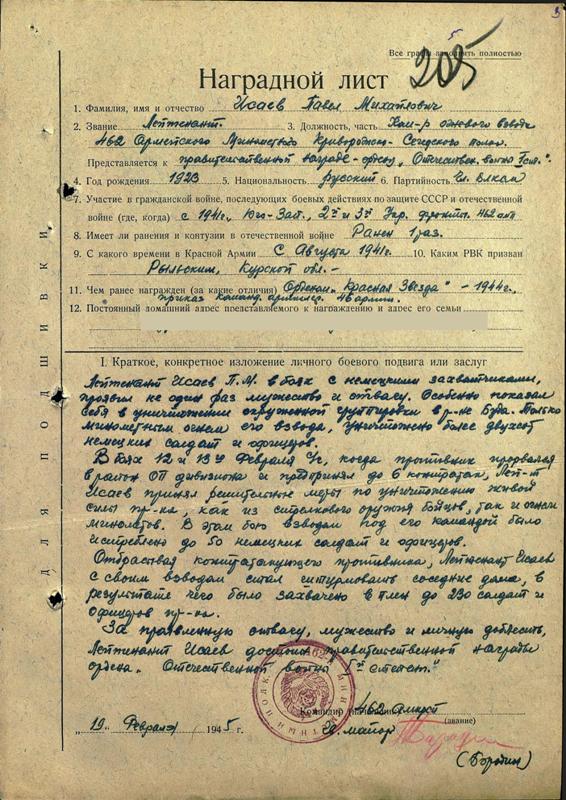 Все графы заполнять полностью
205
Наградной лист
1. Фамилия, имя и отчество Исаев Павел Михайлович
2. Звание Лейтенант. 3. Должность, часть Ком-р огневого взвода
462 Армейского Минометного Криворожско- полка.
Представляется к правительственной награде-орден „Отечествен. войны Iст."
4. Год рождения 1923 5. Национальность русский 6. Партийность Чл. ВЛКСМ
7. Участие в гражданской войне, последующих боевых действиях по защите СССР и отечественной
войне (где, когда) с 1941г. Юго-Зап., 2й и 3й Укр. фронты. 462 амп
8. Имеет ли ранения и контузии в отечественной войне Ранен 1 раз.
9. С какого времени в Красной Армии с Августа 1941г. 10. Каким РВК призван
Рыльским, Курской обл.-
11. Чем ранее награжден (за какие отличия) Орденом „Красная Звезда" - 1944г.,
приказ команд. артиллер. 46 армии.
12. Постоянный домашний адрес представляемого к награждению и адрес его семьи
I. Краткое, конкретное изложение личного боевого подвига или заслуг
Лейтенант Исаев П.М. в боях с немецкими захватчиками,
проявил не один раз мужество и отвагу. Особенно показал
себя в уничтожении окружоной группировки в р-не Буда. Только
минометным огнем его взвода, уничтожено более двухсот
немецких солдат и офицеров.
В боях 12 и 13го февраля с/г, когда противник прорвался
в район ОП дивизиона и предпринял до 6 контратак, Лей-т
Исаев принял решительные меры по уничтожению живой
силы пр-ка, как из стрелкового оружия бойцов, так и огнем
минометов. В этом бою взводом под его командой было
истреблено до 50 немецких солдат и офицеров.
Отбрасывая контратакующего противника, Лейтенант Исаев
с своим взводом стал штурмовать соседние дома, в
результате чего было захвачено в плен до 230 солдат и
офицеров пр-ка.
За проявленную отвагу, мужество и личную доблесть,
Лейтенант Исаев достоин правительственной награды
ордена „Отечественной войны Iой степени."
Командир 462 Арминп
(звание)
Гв. майор
„19" Февраля 1945 г.
(Бородин)
Для подшивки